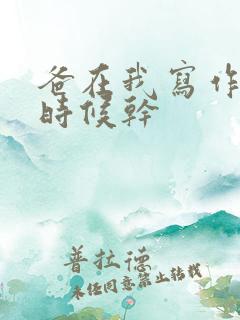 爸在我寫作
時候幹
普拉德
未任同意禁止轉載